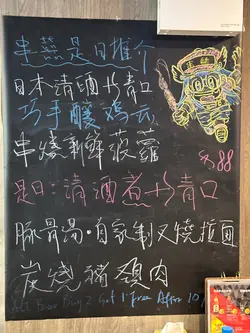 串燕是日推介
日本清酒煮青口
巧手釀鷄云
串燒新鮮菠蘿
$88
是日:清酒煮青口
豚骨湯·自家制叉燒拉面
炭燒豬頸肉
Beer Buy 2 Get 1 Free After 10